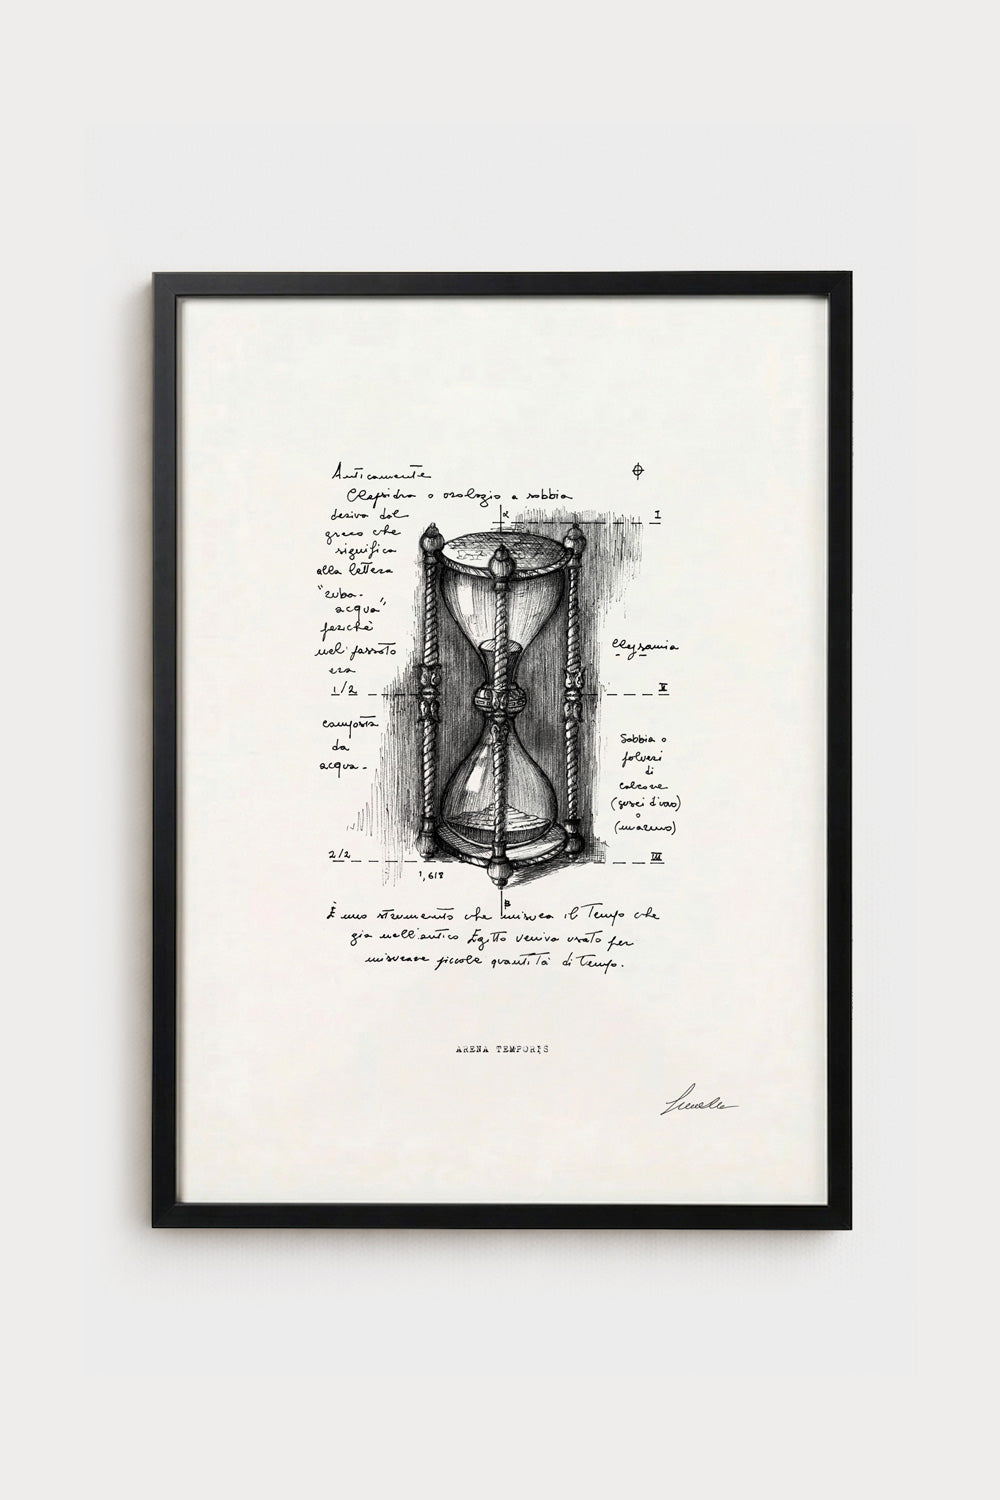 Anticamente
Clepsidra o orologio a sabbia
deriva dal
greco che
significa
alla lettera
"ruba-
acqua"
perché
nel passato
era
1/2
composta
da
acqua.
2/2
1,618
α
I
Clepsamia
II
Sabbia o
polveri
di
carbone
(gusci d'uovo)
o
(marmo)
III
B
È uno strumento che misura il Tempo che
già nell'antico Egitto veniva usato per
misurare piccole quantità di Tempo.
ARENA TEMPORIS